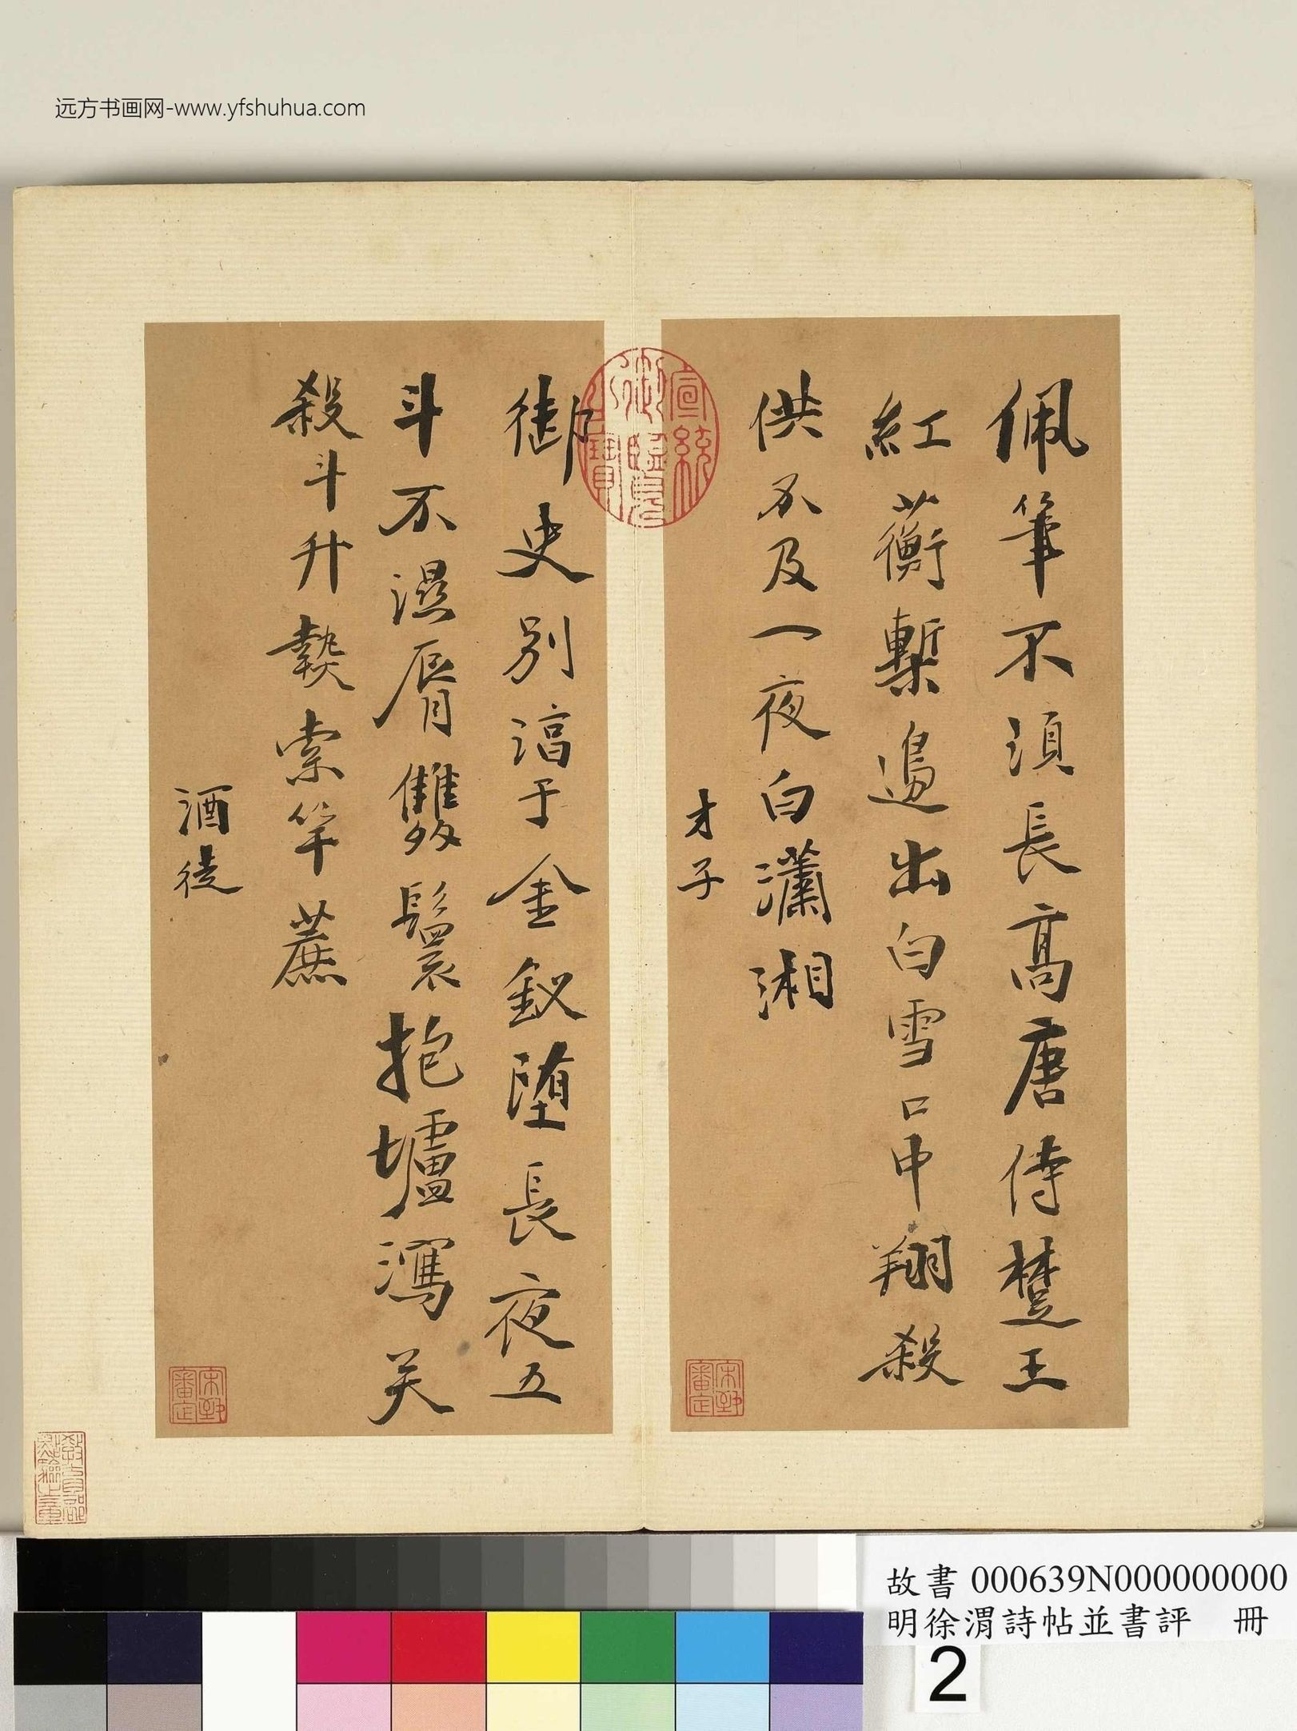 远方书画网-www.yfshuhua.com
佩筆不須長高唐侍楚王
紅蘅槧邉出白雪口中翔殺
供不及一夜白瀟湘
才子
御史別淳于金釵墮長夜五
斗不濕脣雙鬟抱壚瀉笑
殺斗升
索竿蔗
酒徒
宣統御覽之寶
故書 000639N000000000
明徐渭詩帖並書評 冊
2